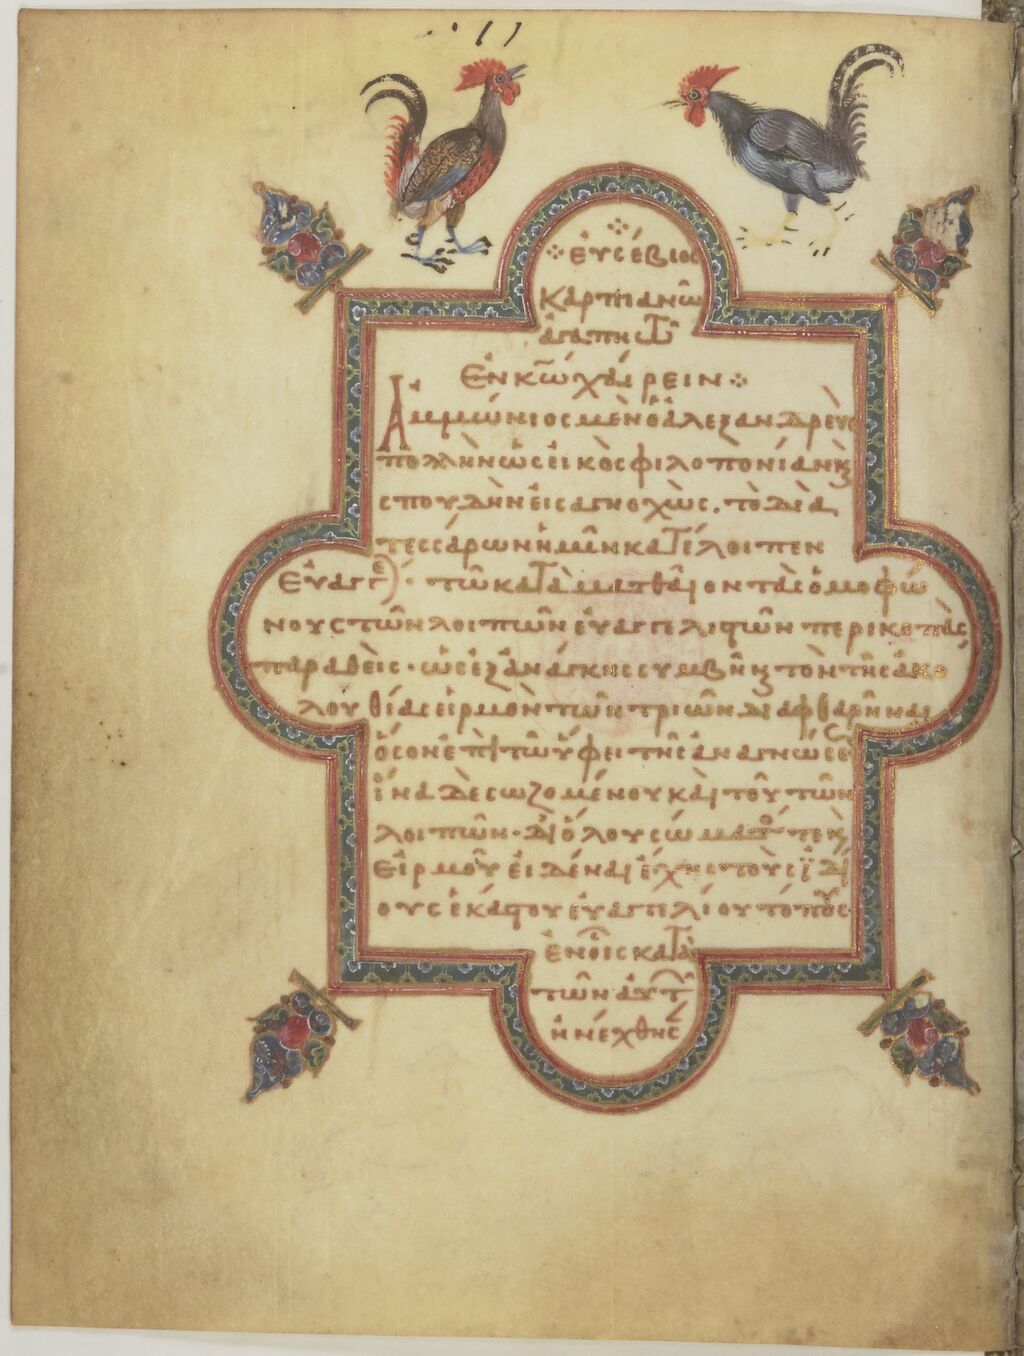 εὐσέβιος
καρπιανῶ
ἀγαπητῶ
ἐν κῶ χαίρειν
Ἀμμώνιος μὲν ὁ ἀλεξανδρεὺς
πολλὴν ὡς εἰκὸς φιλοπονίαν κ
σπουδὴν εἰσαγηοχὼς. τὸ διὰ
τεσσάρων ἡμῖν καταλέλοιπεν
εὐαγγέ· τῶ κατὰ ματθαῖον τὰς ὁμοφώ
νους τῶν λοιπῶν εὐαγγελιστῶν περικοπὰς
παραθεὶς· ὡς ἐξ ἀνάγκης συμβῆναι τὸν τῆς ἀκο
λουθίας εἱρμὸν τῶν τριῶν διαφθαρῆναι
ὅσον ἐπὶ τῶ ὕφει τῆς ἀναγνώσε
ἵνα δὲ σωζομένου καὶ τοῦ τῶν
λοιπῶν· δι ὅλου σώματος τε κ
εἱρμοῦ εἰδέναι ἔχης τοὺς ἰδί
ους ἑκάστου εὐαγγελίου τόπους
ἐν οἷς κατὰ
τῶν αὐτῶ
ἠνέχθης